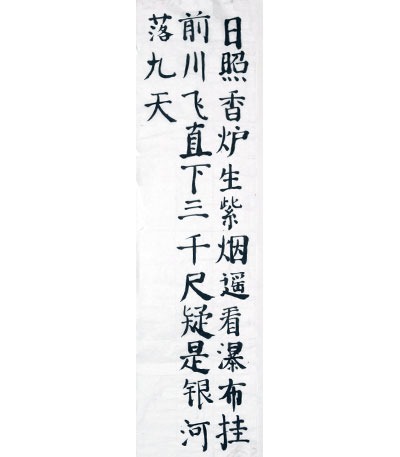 日照香炉生紫烟遥看瀑布挂
前川飞直下三千尺疑是银河
落九天